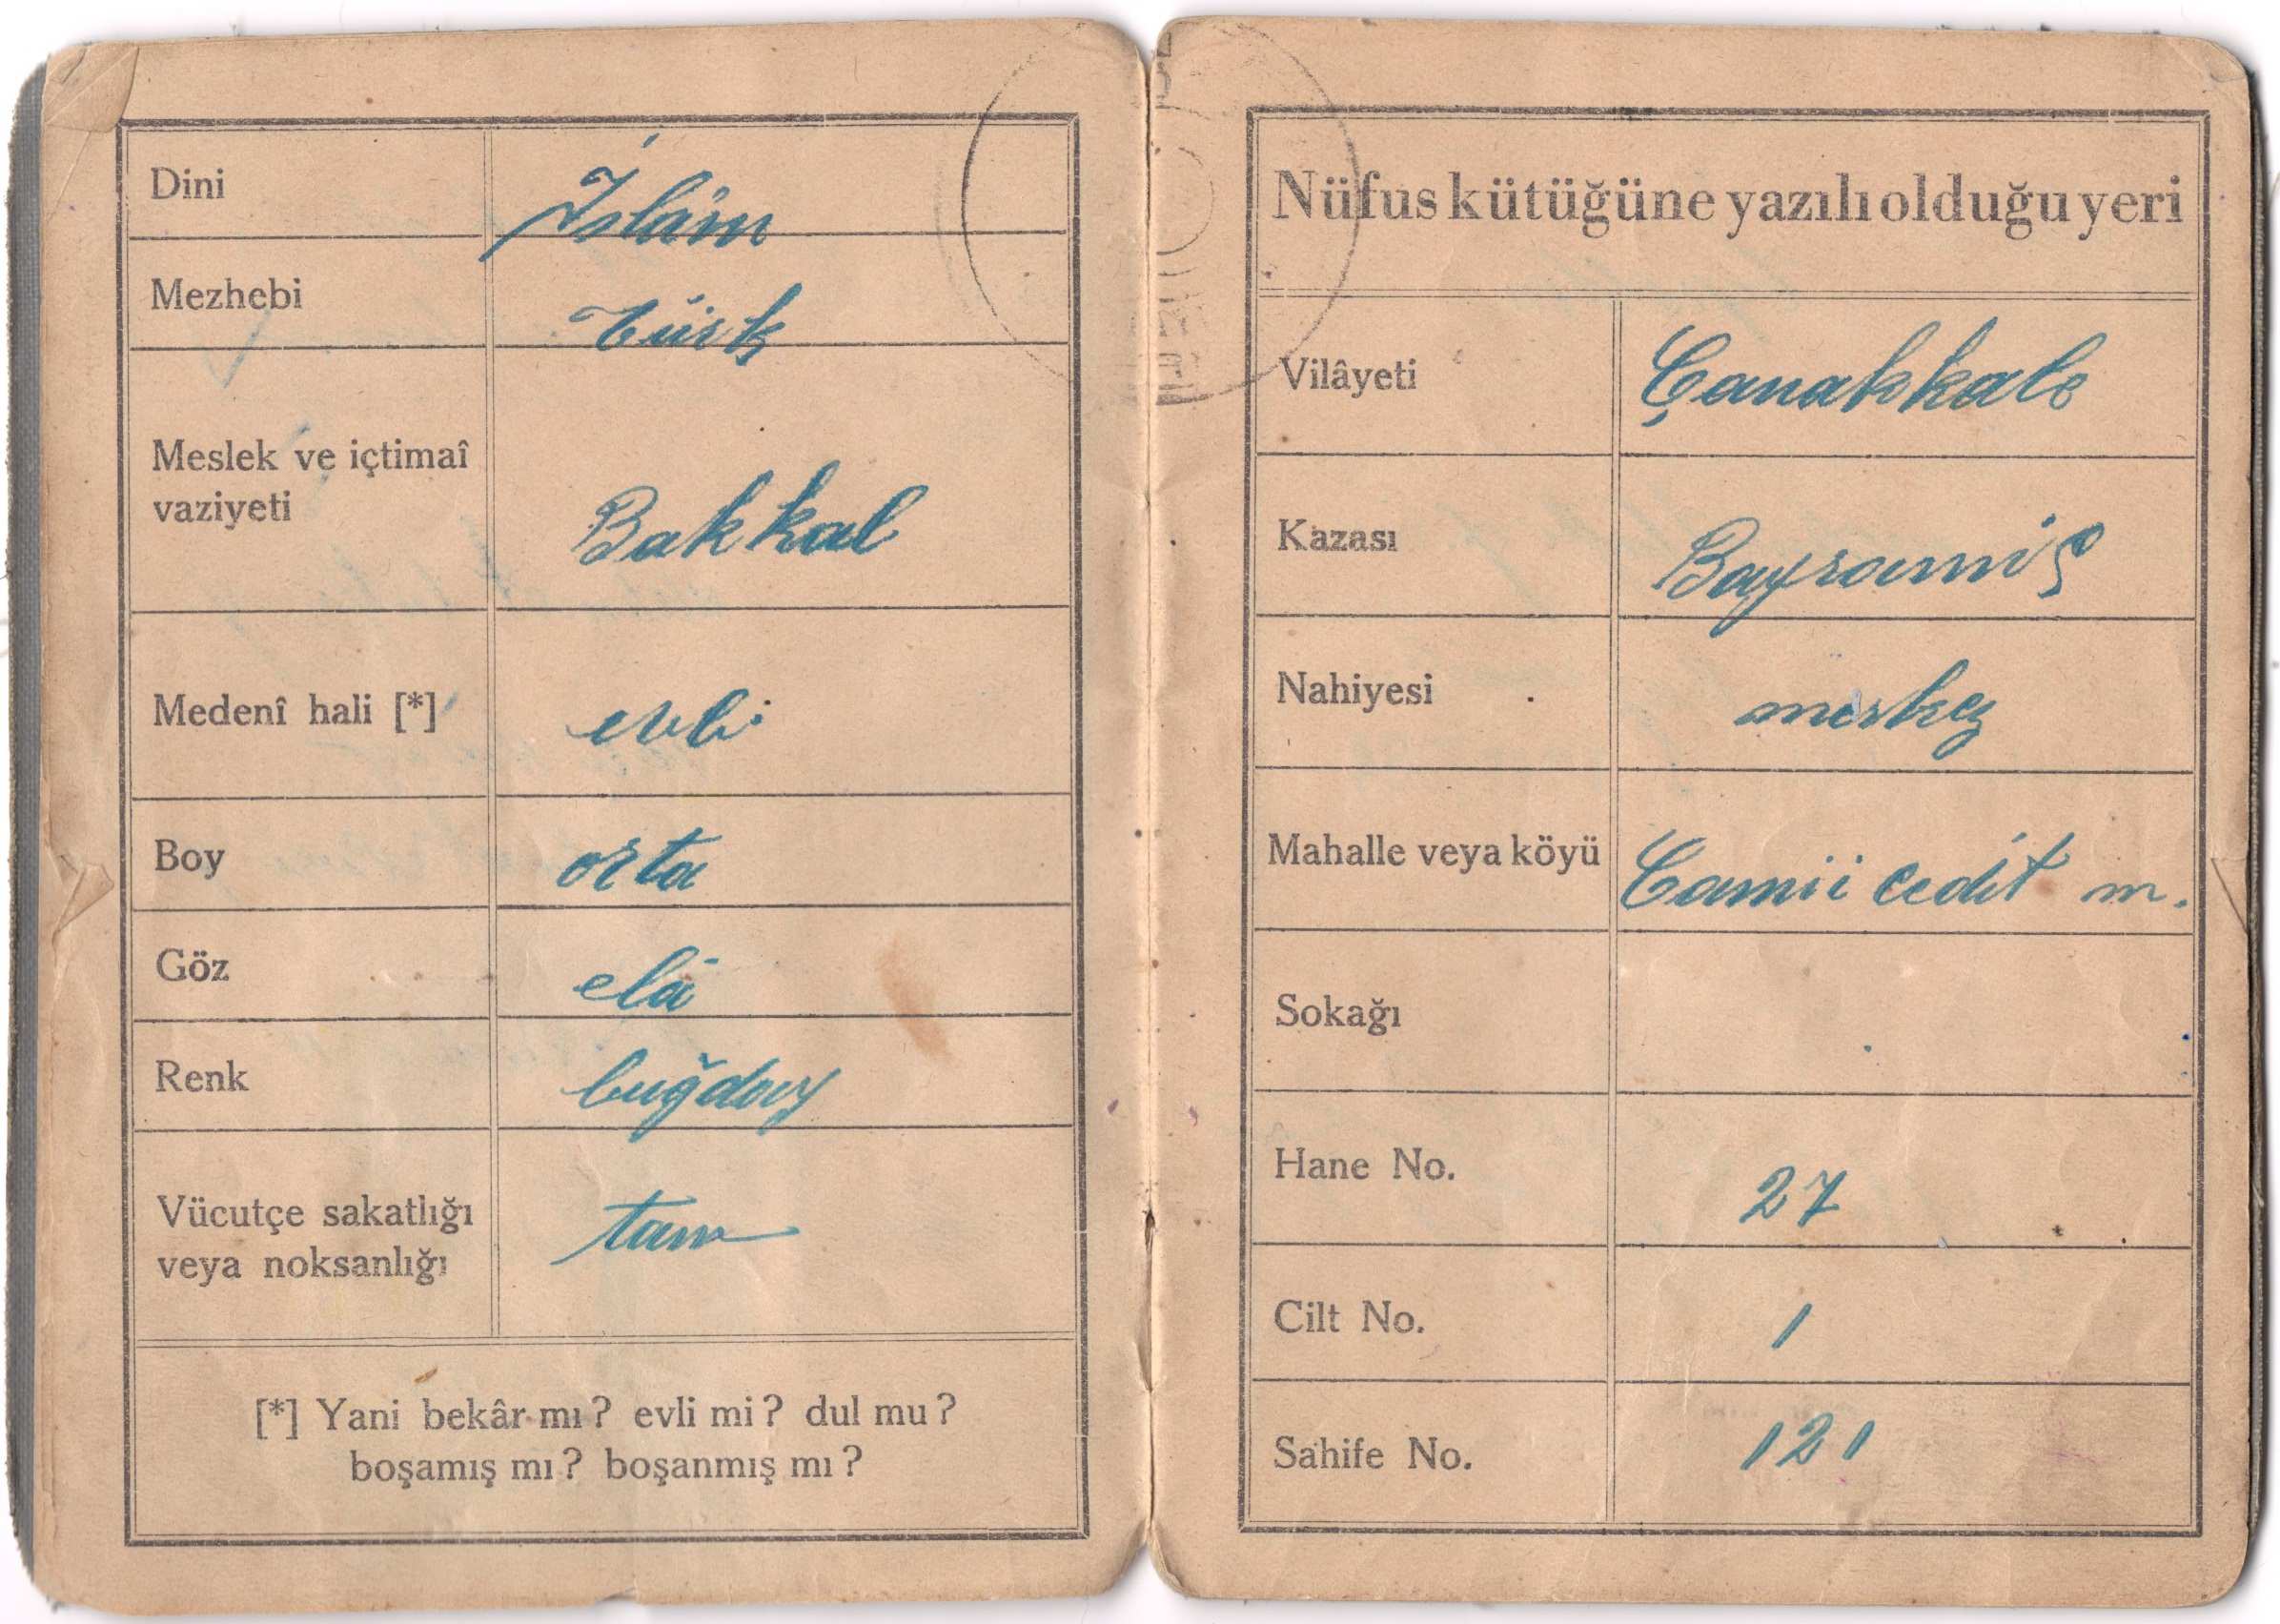 Dini İslâm
Mezhebi türk
Meslek ve içtimaî
vaziyeti Bakkal
Medenî hali [*] evli
Boy orta
Göz elâ
Renk buğday
Vücutçe sakatlığı
veya noksanlığı tam
[*] Yani bekâr mı? evli mi? dul mu?
boşamış mı? boşanmış mı?
Nüfus kütüğüne yazılı olduğu yeri
Vilâyeti Çanakkale
Kazası Bayramiç
Nahiyesi merkez
Mahalle veya köyü Camii cedit m.
Sokağı
Hane No. 27
Cilt No. 1
Sahife No. 121